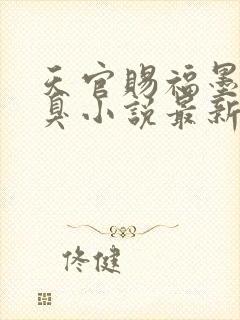 天官赐福墨
臭小说最新
佟健